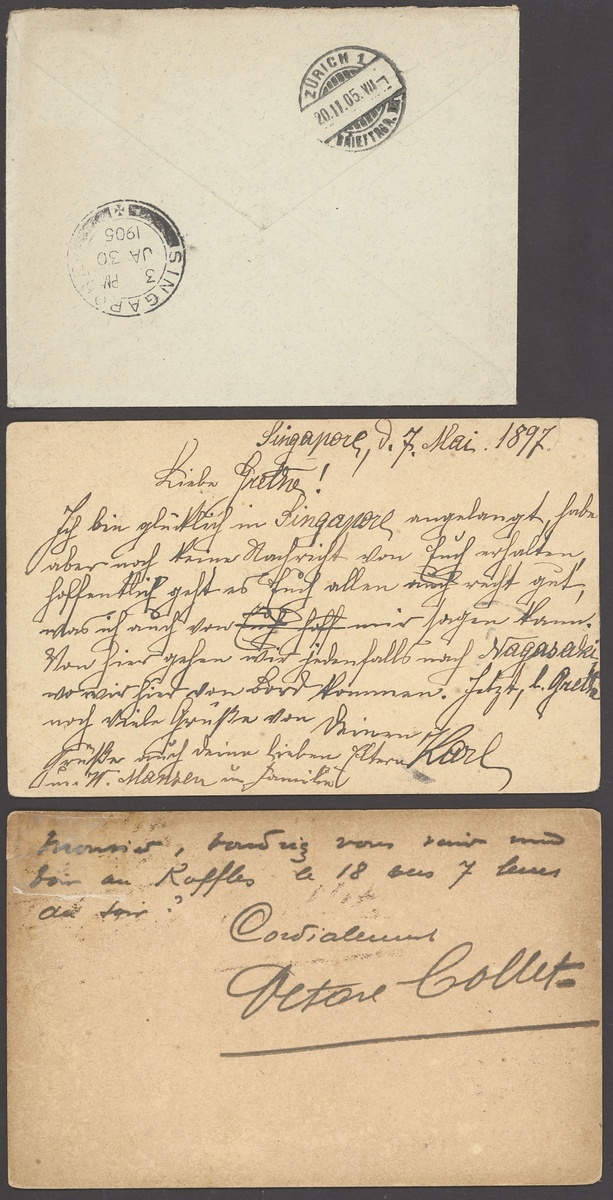 ZÜRICH 1
20.II.05.VII-
BRIEFTRÄG.
SINGAPORE
3 PM
JA 30
1905
Singapore, d. 7. Mai. 1897.
Liebe Grethe!
Ich bin glücklich in Singapore angelangt, habe
aber noch keine Nachricht von Euch erhalten,
hoffentlich geht es Euch allen auch recht gut,
was ich auch von mir sagen kann.
Von hier gehen wir jedenfalls nach Nagasaki
wo wir hier von Bord kommen. Jetzt, l. Grethe
noch viele Grüße von Deinen
Karl
Grüße auch deine lieben Eltern
u. W. Mansen u. Familie
Monsieur, voudriez vous venir
au Raffles le 18 vers 7 heures
du soir?
Cordialement
Octave Collet